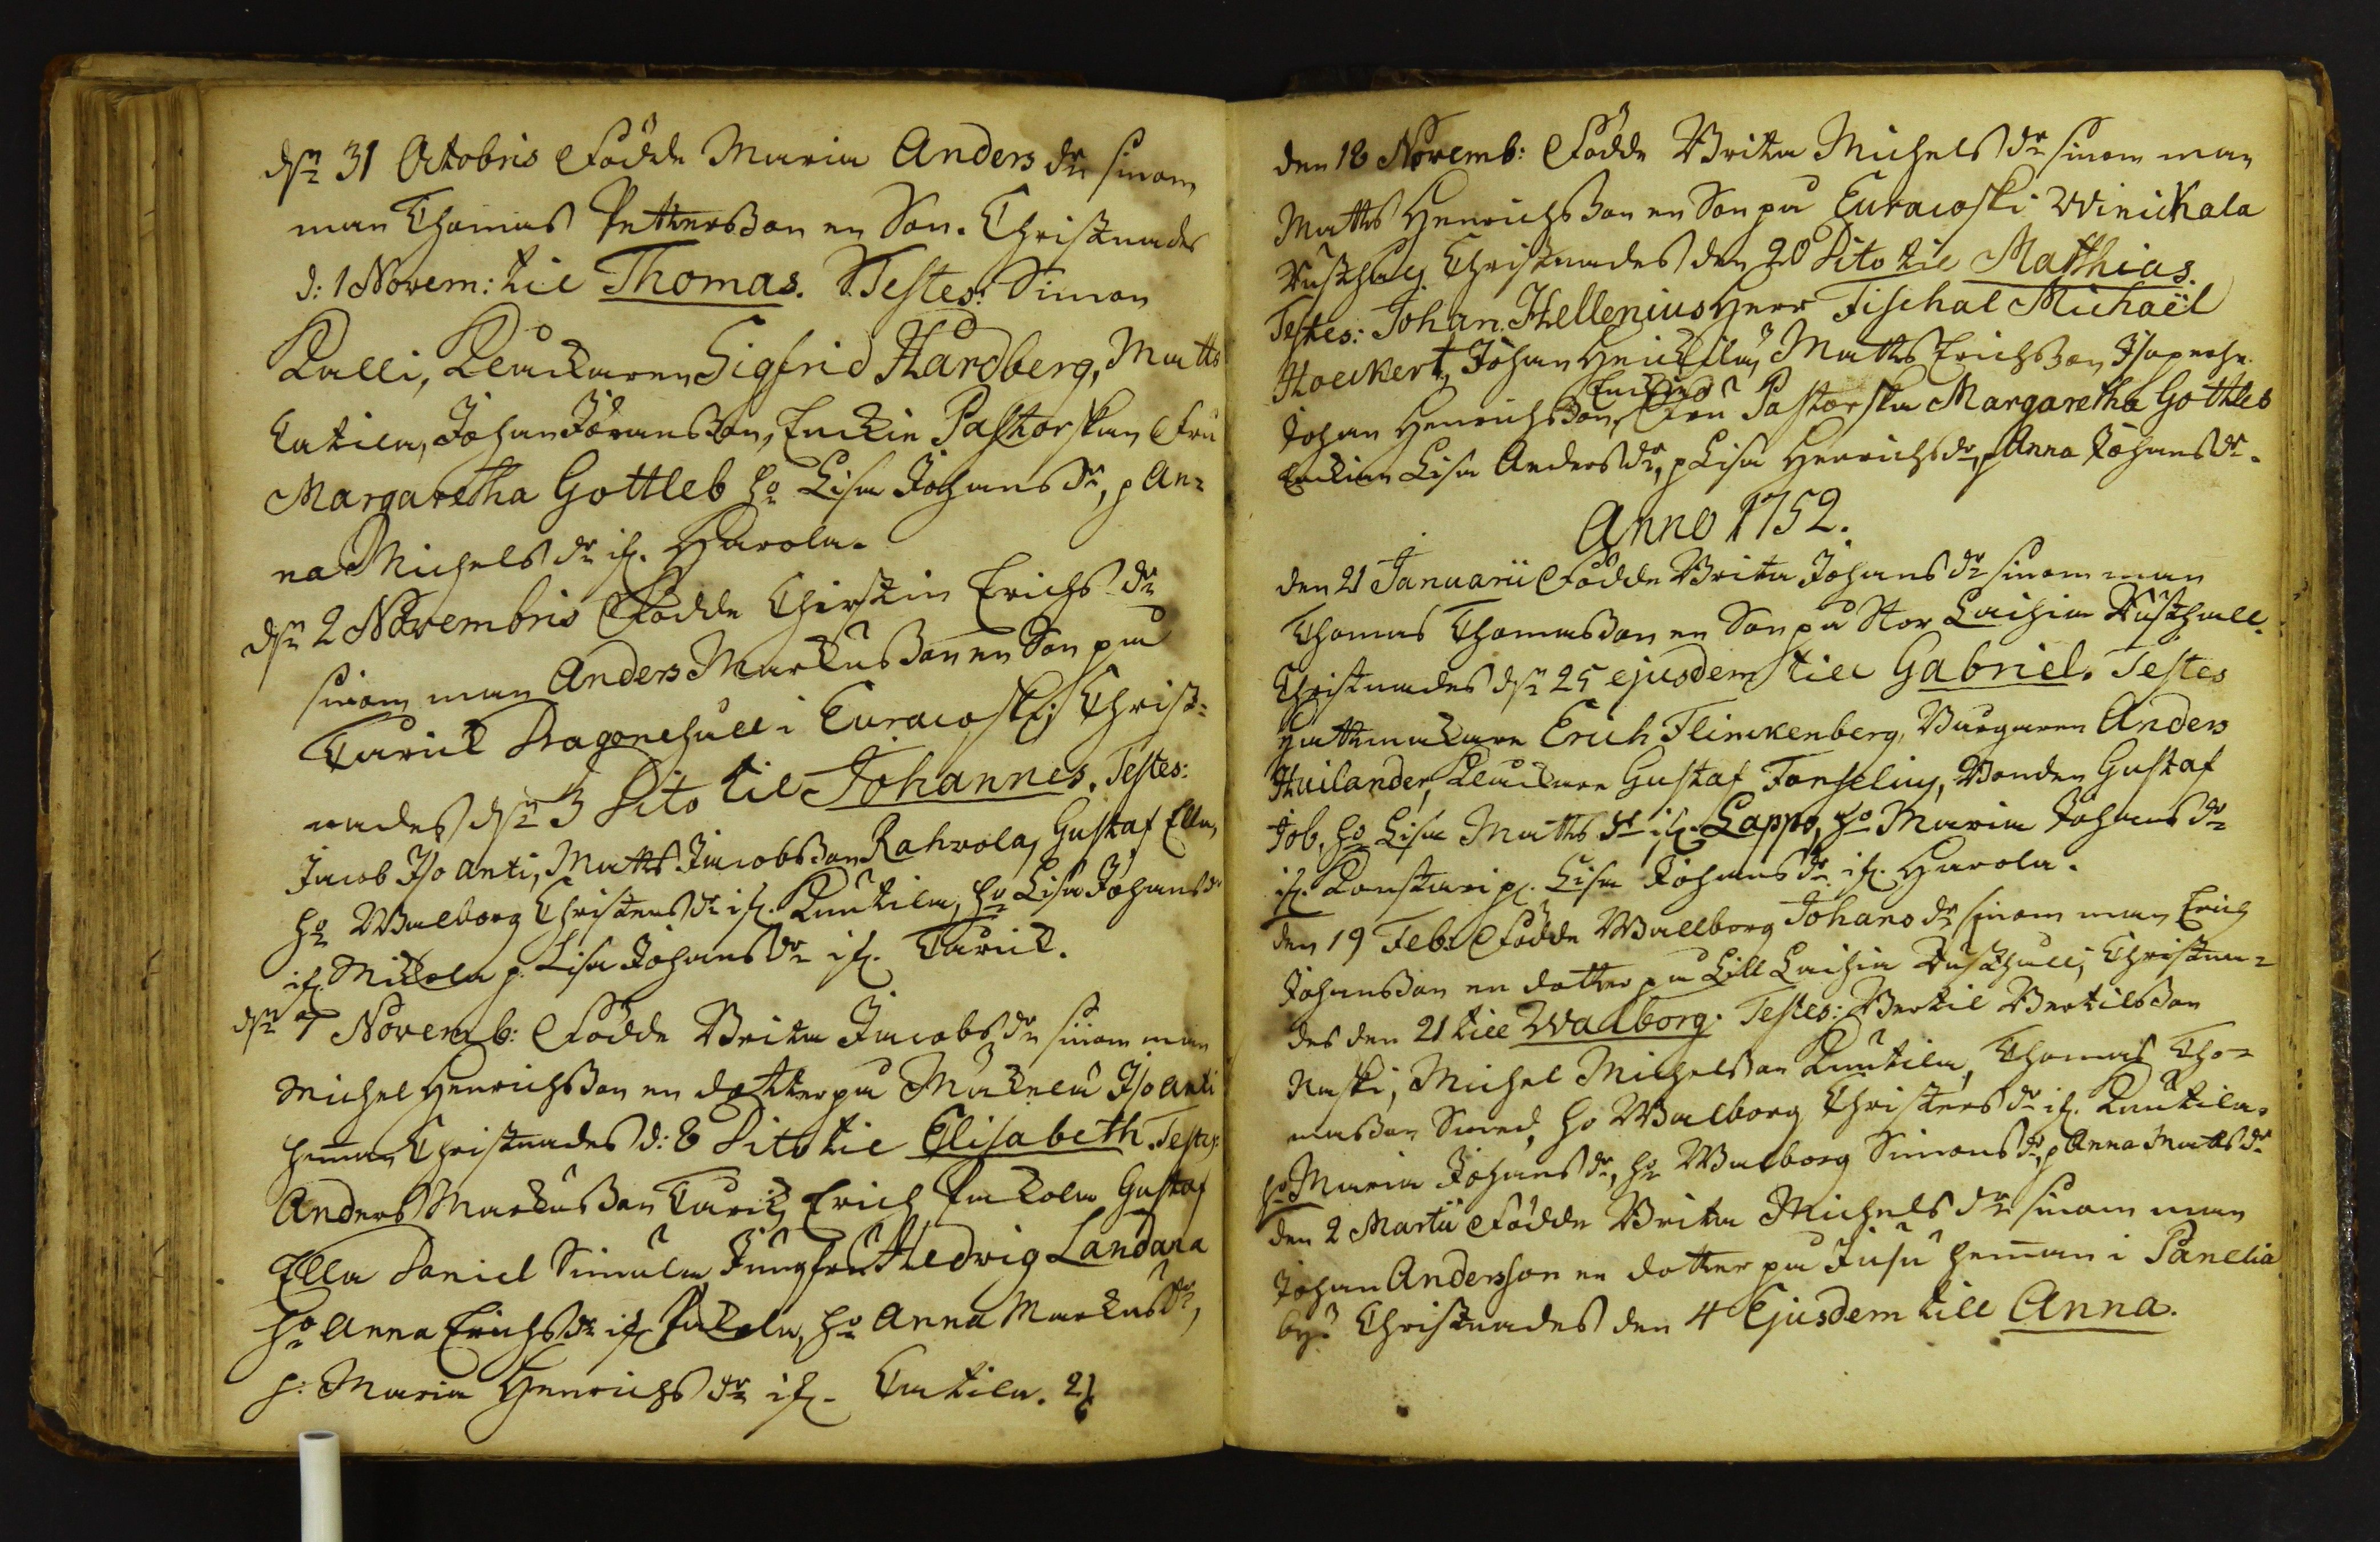 dn 31 Octobris Födde Maria Anders dr sinom
man Thomas Pettersson en Son. Christnades
d: 1 Novem: til Thomas. Testes: Simon
Kalli, Klåckaren Sigfrid Hardberg, Matts
Catila, Johan Jöransson, Enckie Pastorskan Fru
Margaretha Gottleb ho Lisa Johans dr, p An=
na Michels dr if. Harola.
dn 2 Novembris Födde Chirstin Erichs dr
sinom man Anders Markusson en Son på
Taurik Dragonehåll i Euracoski, Christ=
nades dn 3 Dito til Johannes. Testes:
Jacob Iso anti, Matts Jacobsson Rahvola, Gustaf Ella,
ho Walborg Christens dr if. Knutila, ho Lisa Johans dr
if. Mickola p. Lisa Johans dr if. Taurik.
dn 7 Novemb: Födde Brita Jacobs dr sinom man
Michel Henrichsson en dotter på Mäkelä Iso anti
heman Christnades d: 8 Dito til Elisabeth. Testes:
Anders Markusson Taurik, Erich Pukola Gustaf
Ella Daniel Simula, Jungfru Hedvig Landana
ho Anna Erichs dr if Pukola, ho Anna Markus dr,
p: Maria Henrichs dr if. Catila.
den 18 Novemb: Födde Brita Michels dr sinom man
Matts Henrichsson en Son på Euracoski Winickala
Rusthåll Christnades den 20 Dito til Matthias.
Testes: Johan Hellenius Herr Fischal Michaël
Hoeckert, Johan Heickilä, Matts Erichsson Isoperhe
Johan Henrichsson, Enckie Fru Pastorska Margaretha Gottleb
Enckian Lisa Anders dr, p Lisa Henrichs dr, p Anna Johans dr.
Anno 1752.
den 21 Januarii Födde Brita Johans dr sinom man
Thomas Thomasson en Son på Stor Laihia Rusthåll.
Christnades dn 25 ejusdem till Gabriel. Testes
Hattmakare Erich Flinckenberg, Borgaren Anders
Huilander, Klåckare Gustaf Forselius, Bonden Gustaf
Job, ho Lisa Matts dr if. Lappo, ho Maria Johans dr
if. Konstari p. Lisa Johans dr if. Harola.
den 19 Feb: Födde Wallborg Johans dr sinom man Erich
Johansson en dotter på Lill Laihia Rusthåll, Christna=
des den 21 till Walborg. Testes: Bertil Bertilsson
Naski, Michel Michelsson Knutila, Thomas Tho=
masson Smed, ho Walborg Christers dr if. Knutila.
ho Maria Johans dr, ho Walborg Simons dr, p Anna Matts dr
den 2 Martii Födde Brita Michels dr sinom man
Johan Andersson en dotter på Jusu heman i Panelia
by. Christnades den 4 Ejusdem till Anna.